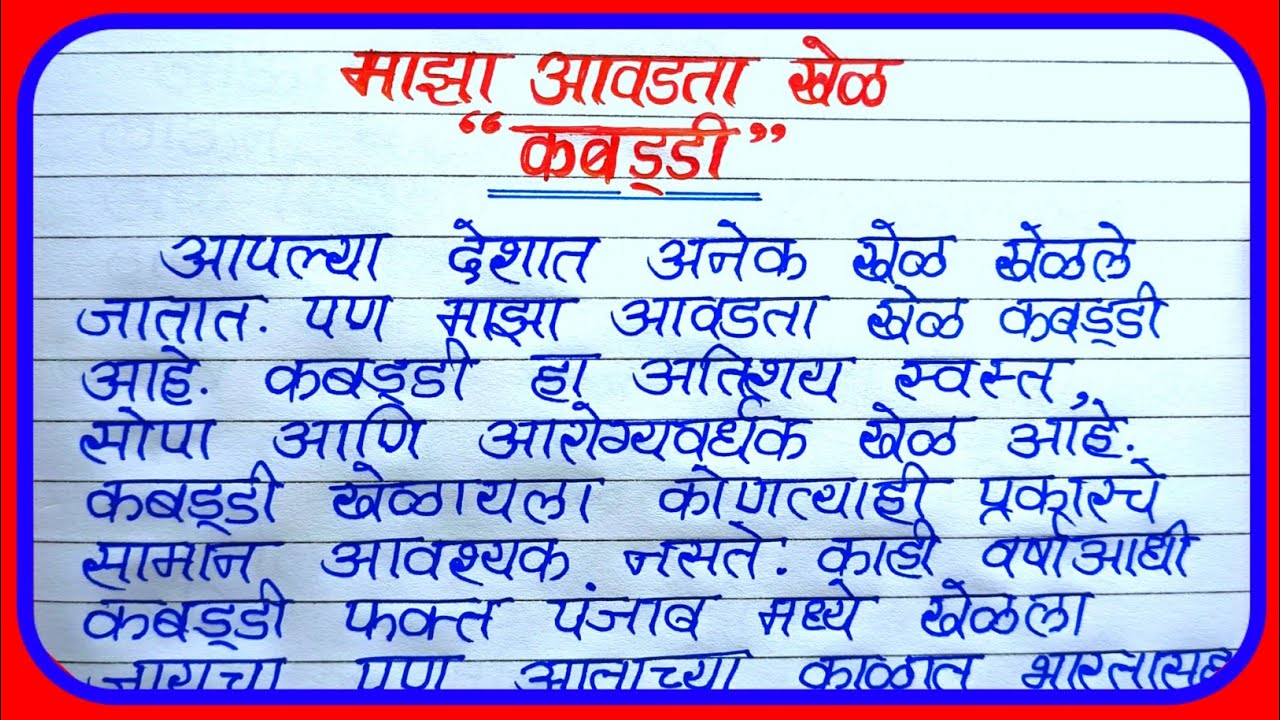 माझा आवडता खेळ
“कबड्डी”
आपल्या देशात अनेक खेळ खेळले
जातात. पण माझा आवडता खेळ कबड्डी
आहे. कबड्डी हा अतिशय स्वस्त,
सोपा आणि आरोग्यवर्धक खेळ आहे.
कबड्डी खेळायला कोणत्याही प्रकारचे
सामान आवश्यक नसते. काही वर्षाआधी
कबड्डी फक्त पंजाब मध्ये खेळला
जायचा पण आताच्या काळात भारतासह